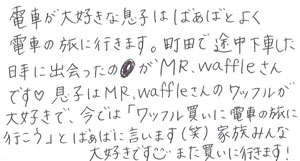 電車が大好きな息子はばあばとよく
電車の旅に行きます。町田で途中下車した
日に出会ったのがMR.waffleさん
です♡ 息子はMR.waffleさんのワッフルが
大好きで、今では「ワッフル買いに電車の旅に
行こう」とばぁばに言います(笑) 家族みんな
大好きです また買いに行きます!